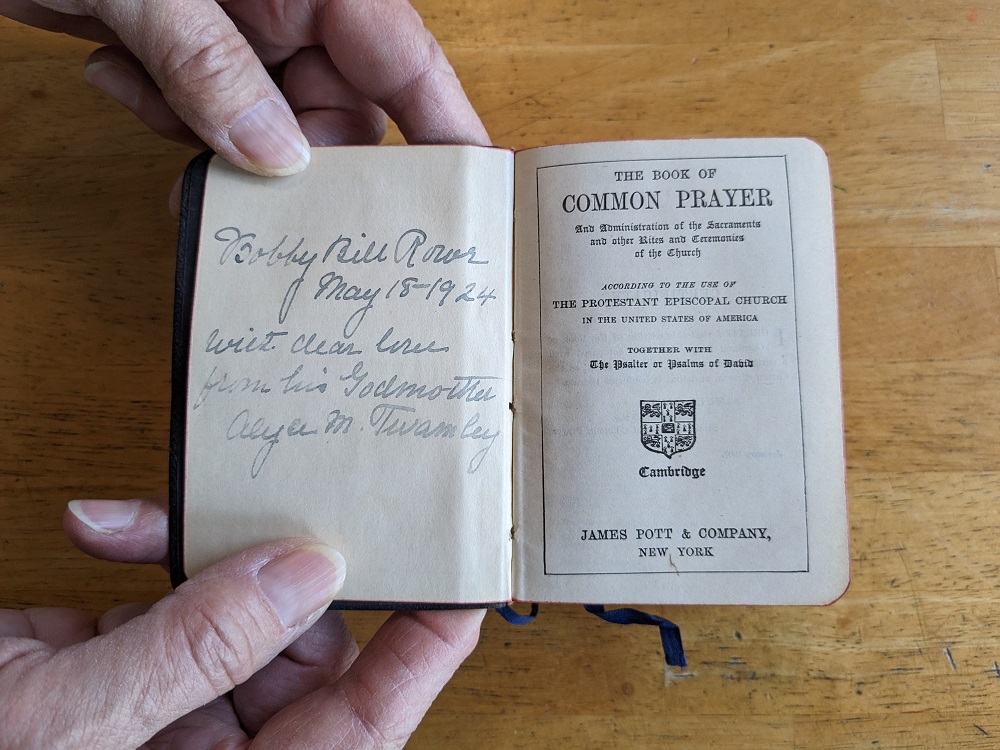 Bobby Bill Rowe
May 18-1924
with dear love
from his Godmother
Alyce M. Twamley
THE BOOK OF
COMMON PRAYER
And Administration of the Sacraments
and other Rites and Ceremonies
of the Church
ACCORDING TO THE USE OF
THE PROTESTANT EPISCOPAL CHURCH
IN THE UNITED STATES OF AMERICA
TOGETHER WITH
The Psalter or Psalms of David
Cambridge
JAMES POTT & COMPANY,
NEW YORK